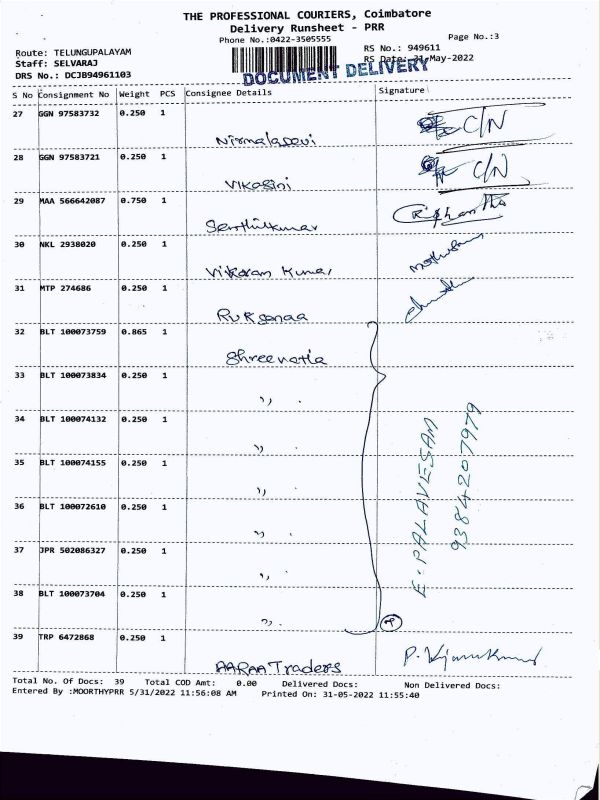 THE PROFESSIONAL COURIERS, Coimbatore
Delivery Runsheet - PRR
Phone No.:0422-3505555
Page No.:3
Route: TELUNGUPALAYAM
RS No.: 949611
Staff: SELVARAJ
RS Date: 31-May-2022
DRS No.: DCJB94961103
DOCUMENT DELIVERY
S No Consignment No Weight PCS Consignee Details Signature
27 GGN 97583732 0.250 1 C/N
Nirmaladevi
28 GGN 97583721 0.250 1 C/N
Vikasini
29 MAA 566642087 0.750 1
Senthilkumar
30 NKL 2938020 0.250 1
Vikram Kumar
31 MTP 274686 0.250 1
Ruksanaa
32 BLT 100073759 0.865 1
Shreevatla
33 BLT 100073834 0.250 1
,, .
34 BLT 100074132 0.250 1
,, .
35 BLT 100074155 0.250 1
,, .
36 BLT 100072610 0.250 1
,, .
37 JPR 502086327 0.250 1
,, .
38 BLT 100073704 0.250 1
,, .
E. PALAVESAM
9384207979
39 TRP 6472868 0.250 1
AARAA Traders
Total No. Of Docs: 39 Total COD Amt: 0.00 Delivered Docs: Non Delivered Docs:
Entered By :MOORTHYPRR 5/31/2022 11:56:08 AM Printed On: 31-05-2022 11:55:40